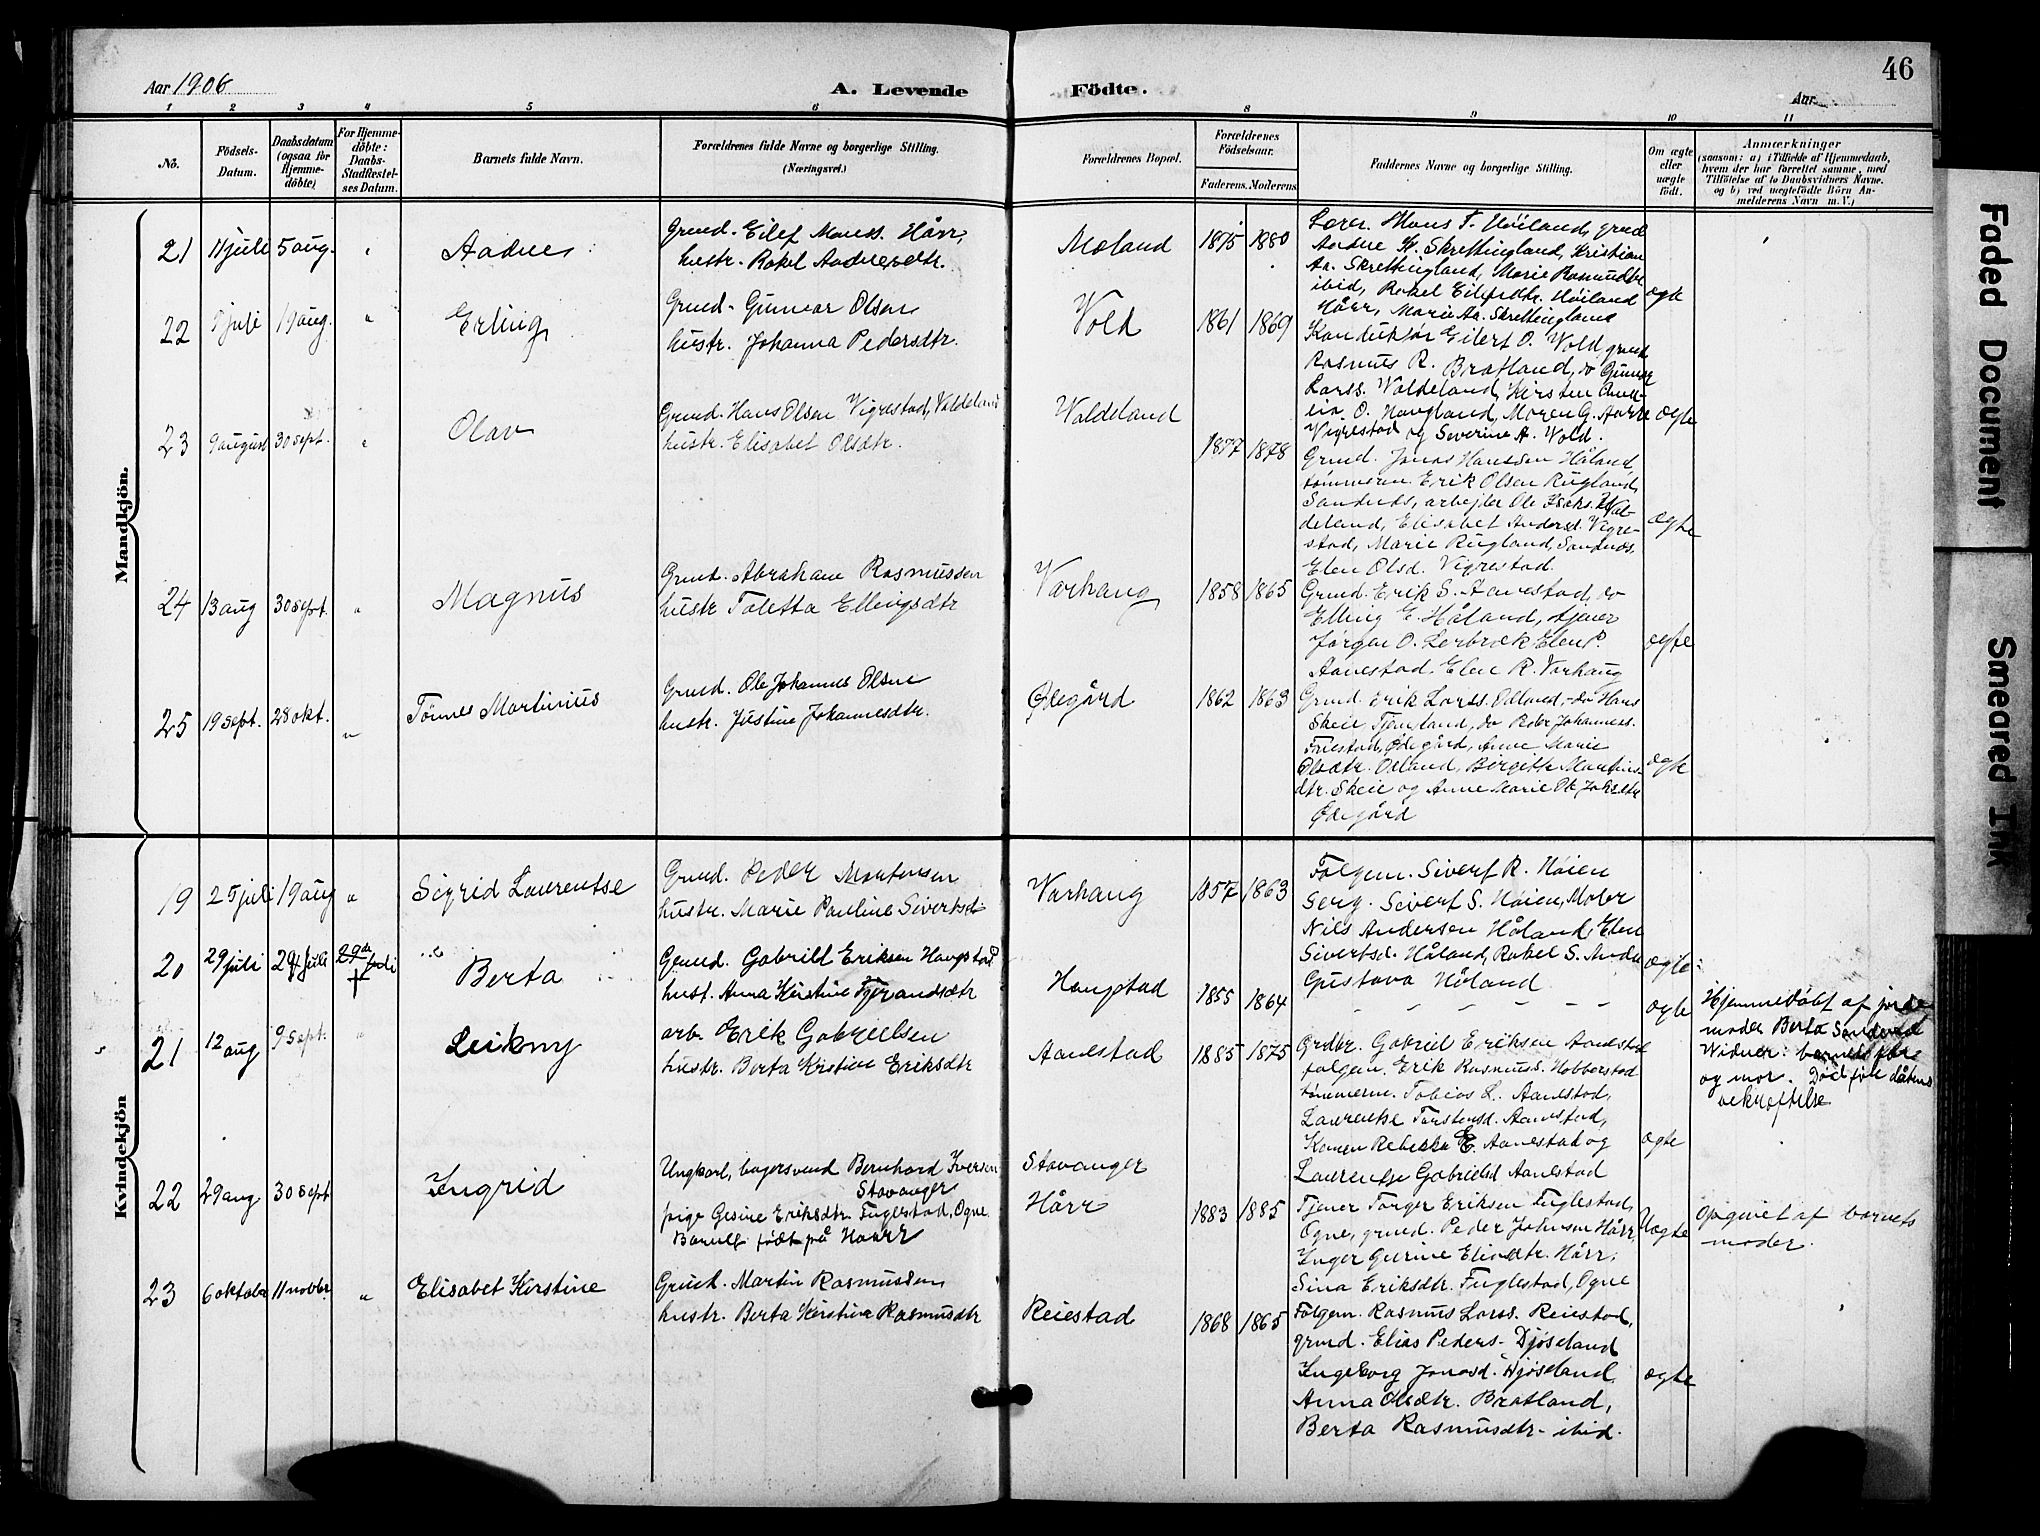 Aar 1906
A. Levende Födte.
46
Aar
1 2 3 4 5 6 8 9 10 11
No.
Födsels-Datum.
Daabsdatum (ogsaa for Hjemmedöbte)
For Hjemmedöbte: Daabs-Stadfæstelses Datum.
Barnets fulde Navn.
Forældrenes fulde Navne og borgerlige Stilling. (Næringsvei.)
Forældrenes Bopæl.
Forældrenes Födselsaar.
Faderens. Moderens.
Faddernes Navne og borgerlige Stilling.
Om ægte eller uægte födt.
Anmærkninger
(saasom: a) i Tilfælde af Hjemmedaab, hvem der har forrettet samme, med Tilföielse af to Daabsvidners Navne. og b) ved uægtefödte Börn Anmelderens Navn m. V.)
Mandkjön.
21 11 juli 5 aug. " Aadne
Grmd. Eilef Monss. Hårr,
hustr. Rakel Aadnesdtr.
Moland 1875 1880
Lærer. Hans T. Höiland, grmd
Aadne K. Skrettingland, Kristian
Aa. Skrettingland, Marie Rasmusdtr
ibid, Rakel Eilefsdtr. Höiland
Hårr, Marie Aa. Skrettingland
ægte
22 9 juli 19 aug. " Erling
Grmd. Gunnar Olsen
hustr. Johanna Pedersdtr.
Vold 1861 1869
Konduktør Eilert O. Vold grmd
Rasmus R. Bratland, do Gunnar
Larss. Valdeland, Kirsten
O. Haugland, Maren G. Aarre
Vigrestad og Severine A. Vold.
ægte
23 9 august 30 sept. " Olav
Grmd. Hans Olsen Vigrestad, Valdeland
hustr. Elisabet Olsdtr.
Valdeland 1877 1878
Grmd. Jonas Hansson Håland,
tømmerm. Erik Olsen Rugland,
Sandnes, arbejder Ole Isaks. Valdeland,
Elisabet Andersd. Vigrestad,
Marie Rugland, Sandnes,
Elen Olsd. Vigrestad.
ægte
24 13 aug 30 sept. " Magnus
Grmd. Abraham Rasmussen
hustr Toletta Ellingsdtr
Varhaug 1858 1865
Grmd. Erik S. Aanestad, do
Elling E. Håland, tjener
Jørgen O. Lerbræk Elen P.
Aanestad, Elen R. Varhaug
ægte
25 19 sept. 28 okt. " Tønnes Martinius
Grmd. Ole Johannes Olsen
hustr. Justine Johannesdtr.
Ødegård 1862 1863
Grmd. Erik Larss. Ødland, do Hans
Skeie Tjemsland, do Peder Johanness.
Friestad, Ødegård, Anne Marie
Olsdtr. Ødland, Birgitte Martinsdtr.
Skeie og Anne Marie Ole Johsdtr
Ødegård
ægte
Kvindekjön
19 25 juli 19 aug " Sigrid Laurentse
Grmd. Peder Mortensen
hustr. Marie Pauline Sivertsd
Varhaug 1857 1863
Folgem. Sivert R. Høien
Serg. Sivert S. Høien, Maler
Nils Andersen Håland, Elen
Sivertsd. Håland, Rakel S.
Gustava Håland
ægte
20 29 juli 29 juli 29de juli † Berta
Grmd. Gabriel Eriksen Haugstad
hust. Anna Kirstine Tjerandsdtr
Haugstad 1855 1864
- - - - - -
ægte
Hjemmedøbt af jordemoder
Berta Sandved
Widner: barnets far
og mor. Død før dåbens
bekræftelse
21 12 aug 9 sept. " Leikny
arb. Erik Gabrielsen
hustr. Berta Kirstine Eriksdtr
Aanestad 1885 1875
Grdbr. Gabriel Eriksen Aanestad
folgem. Erik Rasmuss. Hobberstad
tømmerm. Tobias L. Aanestad,
Laurentse Torstensd. Aanestad,
Konen Rebekka E. Aanestad og
Laurentse Gabrielsd Aanestad
ægte
22 29 aug 30 sept Ingrid
Ungkarl, bagersvend Bernhard Iversen
Stavanger
pige Gesine Eriksdtr. Fuglestad, Ogne.
Barnet født på Haarr
Stavanger
Hårr
1883 1885
Tjener Torger Eriksen Fuglestad,
Ogne, grmd. Peder Johnsen Hårr,
Inger Gurine Eliasdtr. Hårr,
Sina Eriksdtr. Fuglestad, Ogne
Uægte
Opgivet af barnets
moder.
23 6 oktober 11 novbr. " Elisabet Kirstine
Grmd. Martin Rasmussen
hustr. Berta Kirstine Rasmusdtr
Reiestad 1868 1865
Folgem. Rasmus Larss. Reiestad,
grmd. Elias Peders. Djøseland
Ingeborg Jonasd. Djøseland,
Anna Olsdtr. Bratland,
Berta Rasmusdtr. ibid.
ægte
Faded Document
Smeared Ink